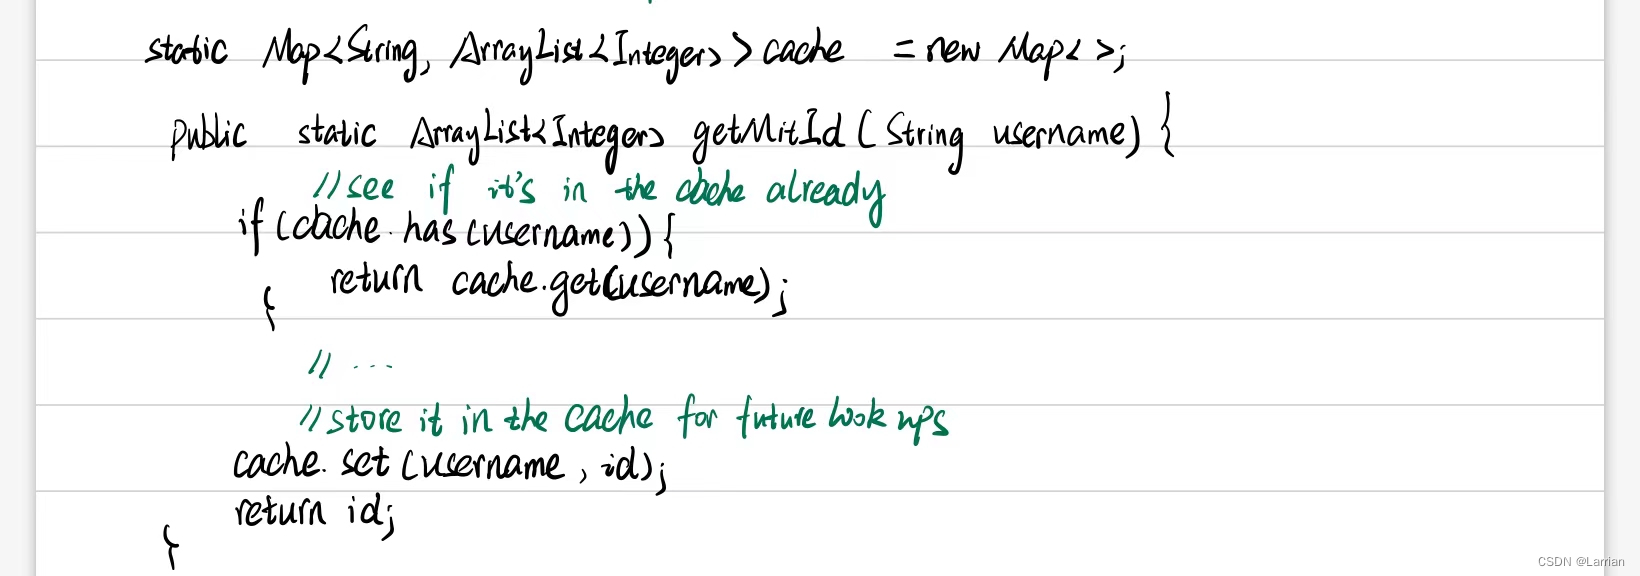 static Map<String, ArrayList<Integer>> cache = new Map< >;
public static ArrayList<Integer> getMitId (String username) {
//see if it's in the cache already
if (cache.has(username)) {
return cache.get(username);
}
// ...
//store it in the cache for future look ups
cache.set (username, id);
return id;
}
CSDN @Larrian